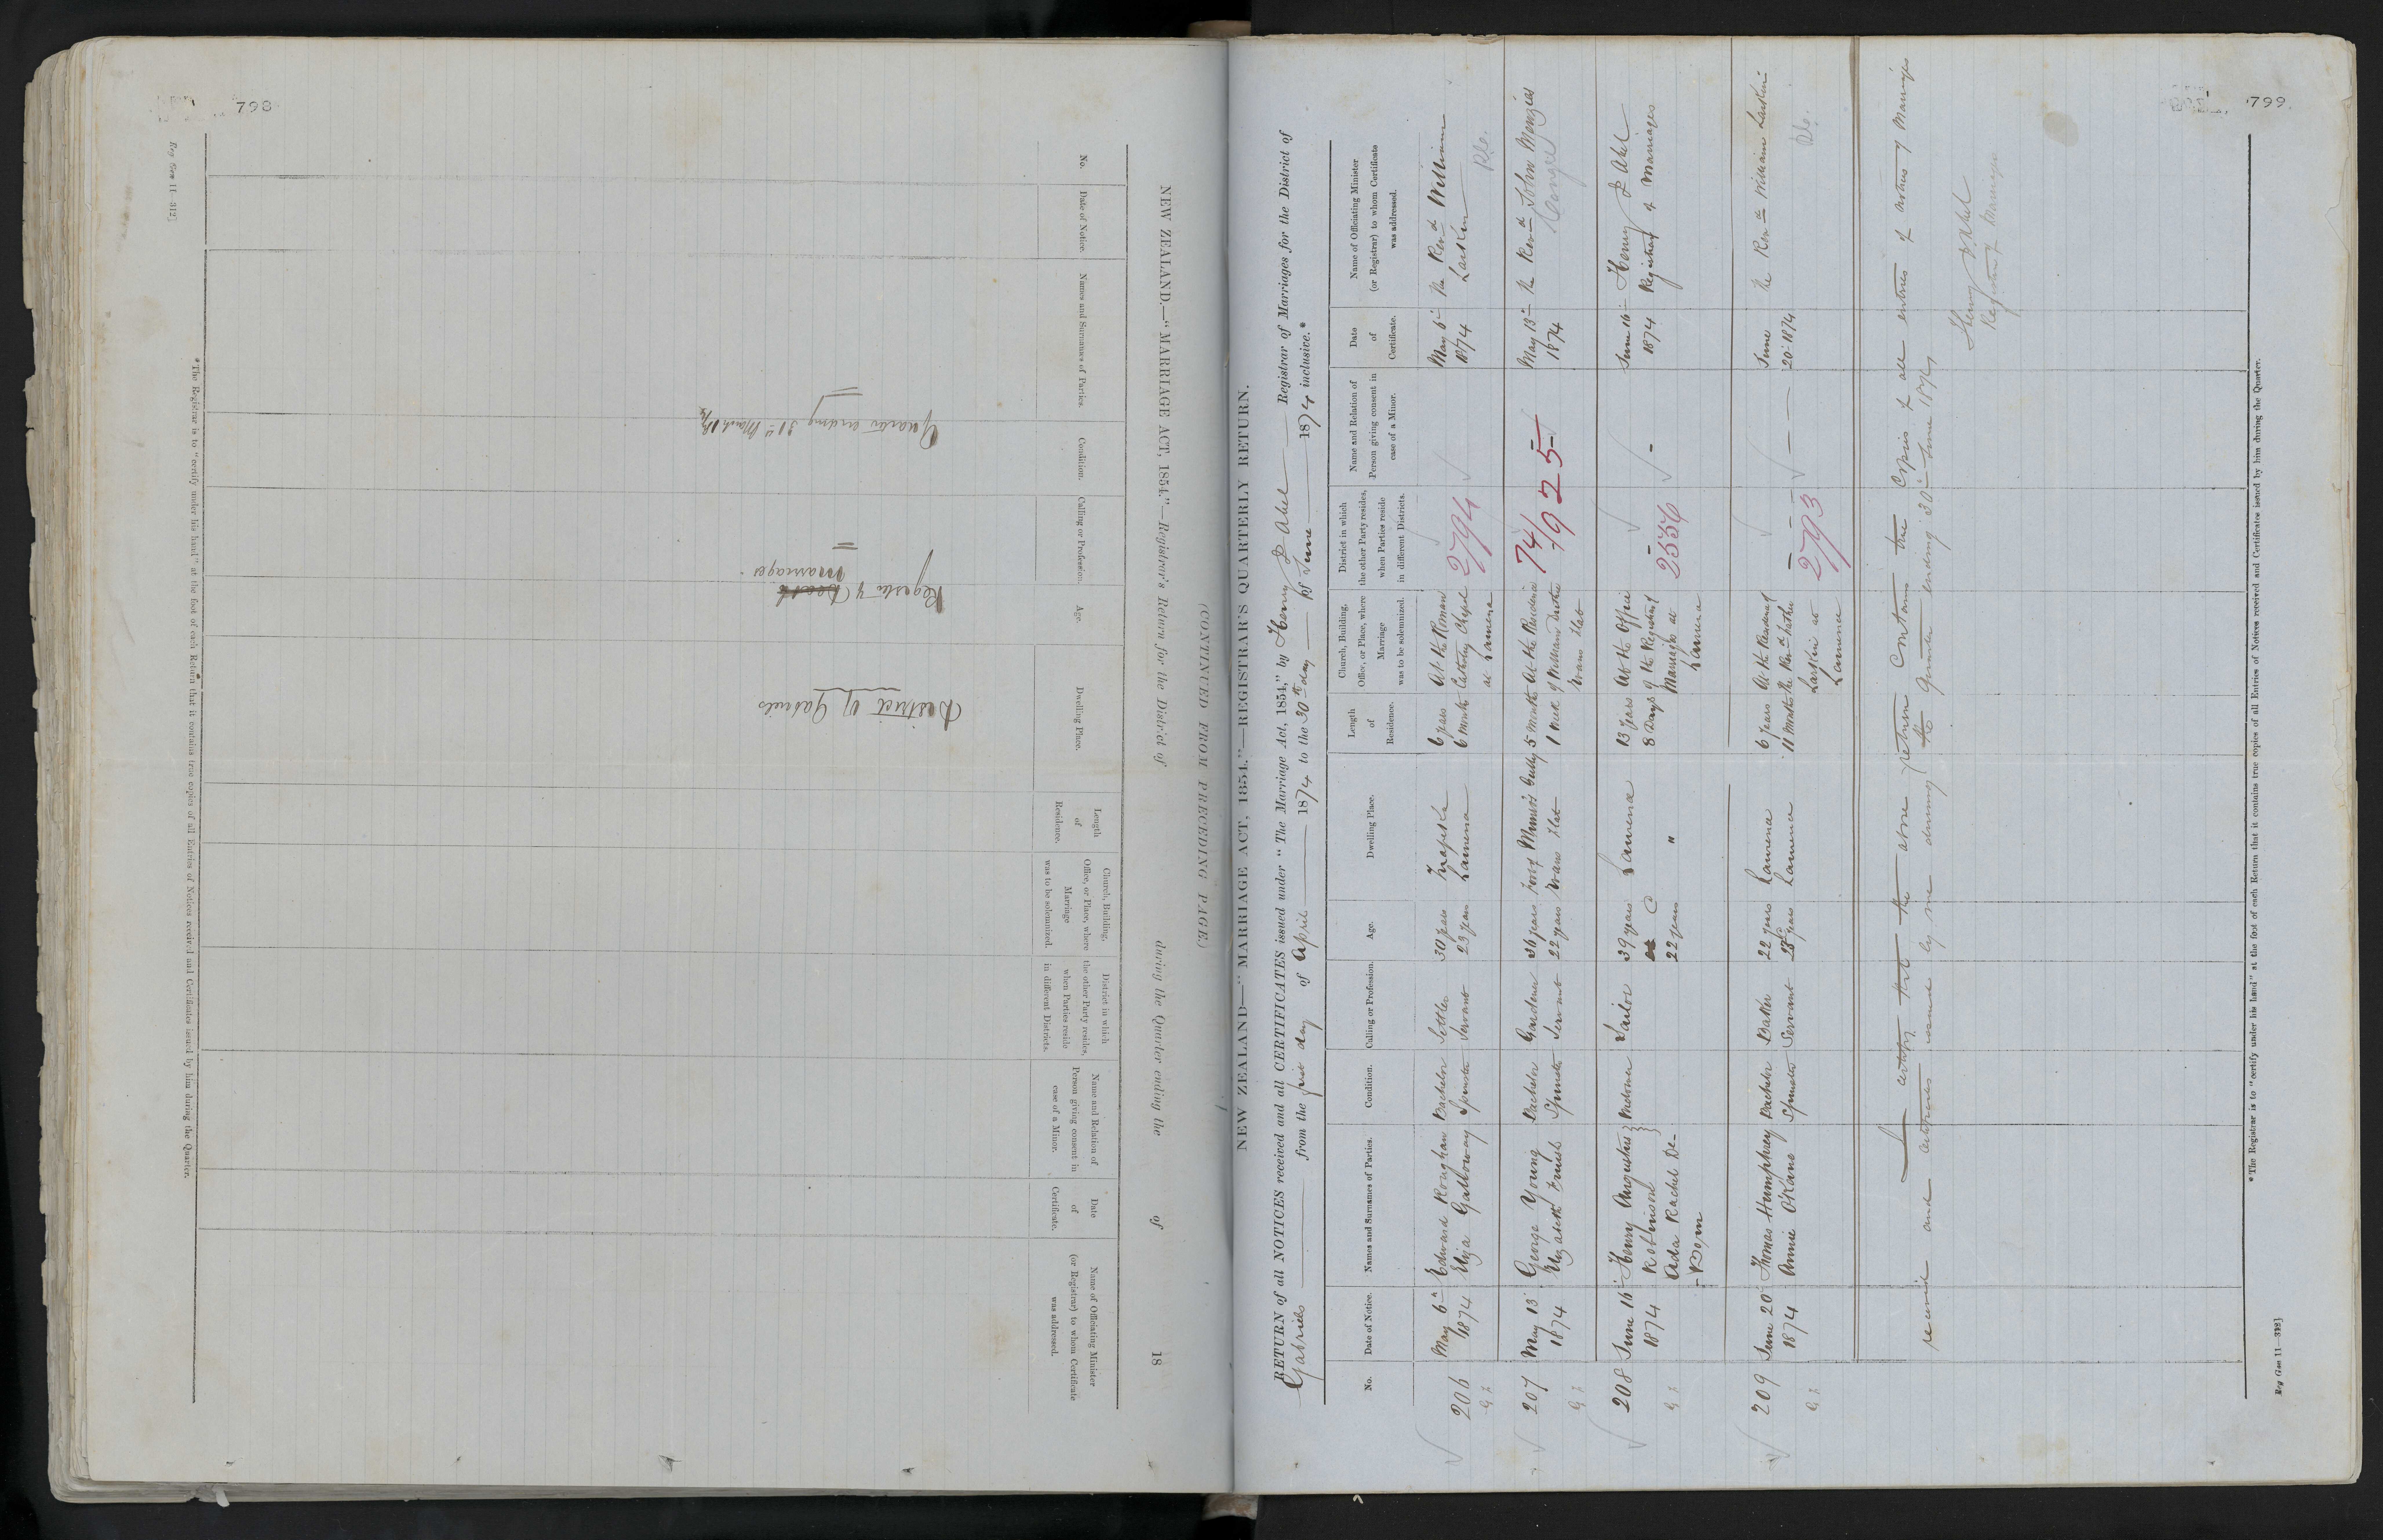 798
Reg Gen 11—312]
NEW ZEALAND.—"MARRIAGE ACT, 1854."—Registrar's Return for the District of during the Quarter ending the of 18
No.
Date of Notice.
Names and Surnames of Parties.
Condition.
Calling or Profession.
Age.
Dwelling Place.
Length
of
Residence.
Church, Building,
Office, or Place, where
Marriage
was to be solemnized.
District in which
the other Party resides,
when Parties reside
in different Districts.
Name and Relation of
Person giving consent in
case of a Minor.
Date
of
Certificate.
Name of Officiating Minister
(or Registrar) to whom Certificate
was addressed.
District of Gabriels
Register of
Marriages
Quarter ending 31st March 1874
*The Registrar is to "certify under his hand" at the foot of each Return that it contains true copies of all Entries of Notices received and Certificates issued by him during the Quarter.
799
(CONTINUED FROM PRECEDING PAGE.)
NEW ZEALAND—"MARRIAGE ACT, 1854."—REGISTRAR'S QUARTERLY RETURN.
RETURN of all NOTICES received and all CERTIFICATES issued under "The Marriage Act, 1854," by Henry J Abel Registrar of Marriages for the District of
Gabriels from the first day of April 1874 to the 30th day of June 1874 inclusive.*
No.
Date of Notice.
Names and Surnames of Parties.
Condition.
Calling or Profession.
Age.
Dwelling Place.
Length
of
Residence.
Church, Building,
Office, or Place, where
Marriage
was to be solemnized.
District in which
the other Party resides,
when Parties reside
in different Districts.
Name and Relation of
Person giving consent in
case of a Minor.
Date
of
Certificate.
Name of Officiating Minister
(or Registrar) to whom Certificate
was addressed.
206 May 6th Edward Roughan Bachelor Settler 30 years Tuapeka 6 years At the Roman May 6th The Revd William
1874 Eliza Galloway Spinster Servant 23 years Lawrence 6 months Catholic Chapel 2794 1874 Larkin
at Lawrence
207 May 13 George Young Bachelor Gardener 36 years Munro's Gully 5 months At the Residence 74/1925 May 13th The Revd John Menzies
1874 Elizabeth Spinster Servant 22 years Evans Flat 1 week of William 1874
Evans Flat
208 June 16th Henry Augustus Widower Tailor 39 years Lawrence 13 years At the Office June 16th Henry J Abel
1874 Robinson 8 days of the Registrar of 2556 1874 Registrar of Marriages
Ada Rachel De- 22 years " Marriages at
Lawrence
209 June 20 Thomas Humphrey Bachelor Baker 22 years Lawrence 6 years At the Residence of June The Revd William Larkin
1874 Annie O'Kane Spinster Servant years Lawrence 11 months the Revd Father 2793 20th 1874
Larkin at
Lawrence
I certify that the above return contains true copies of all entries of notices of Marriage
received and certificates issued by me during the Quarter ending 30th June 1874
Henry J Abel
Registrar of Marriages
*The Registrar is to "certify under his hand" at the foot of each Return that it contains true copies of all Entries of Notices received and Certificates issued by him during the Quarter.
Reg Gen 11—312]